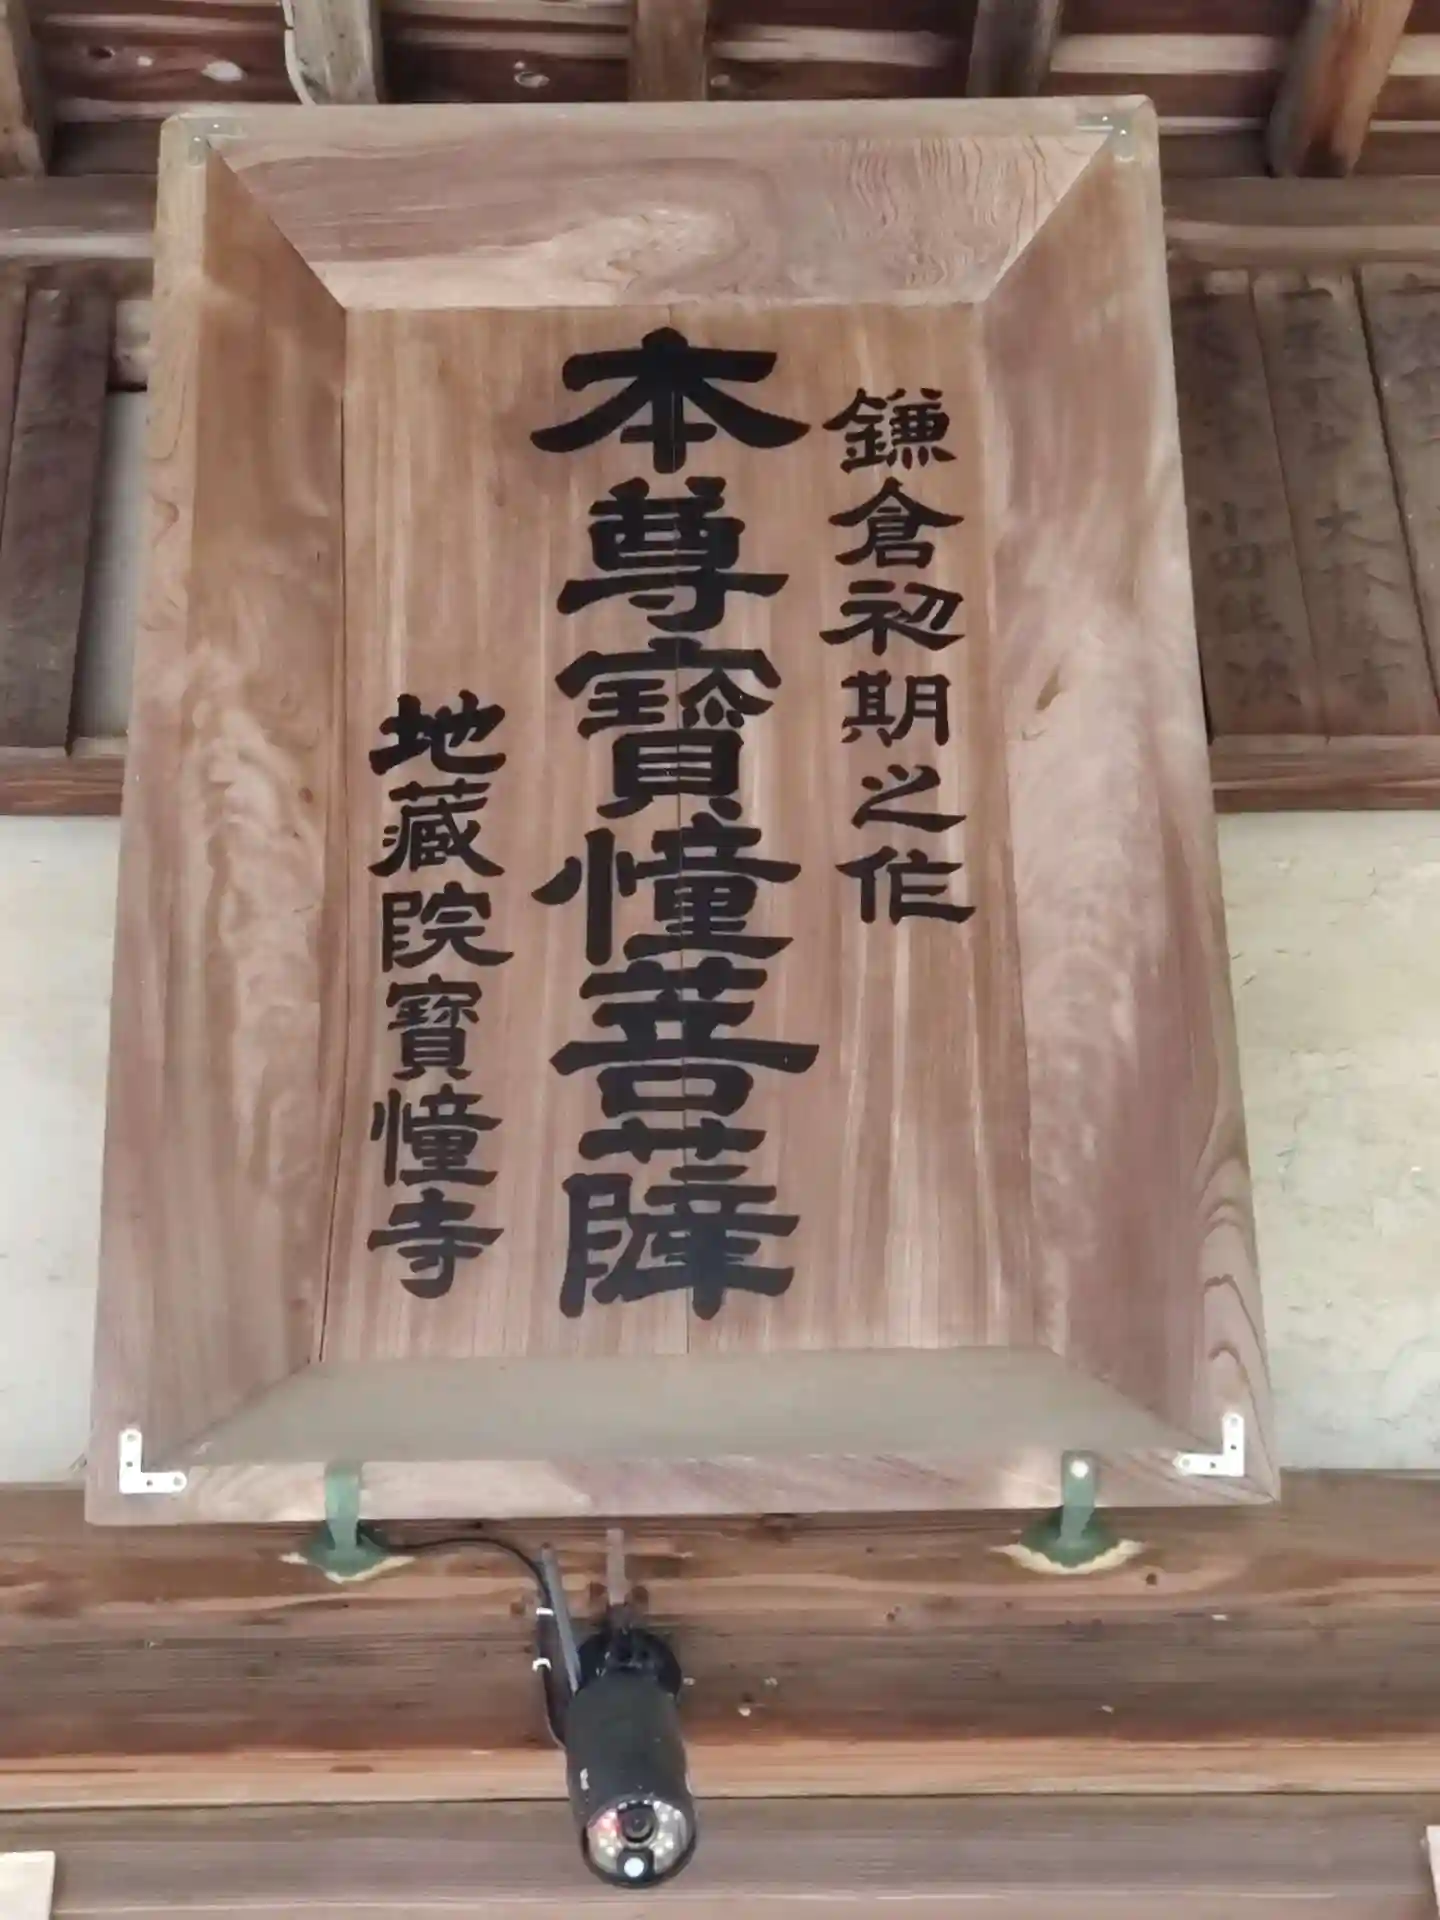 鎌倉初期之作
本尊寳憧菩薩
地蔵院寳憧寺